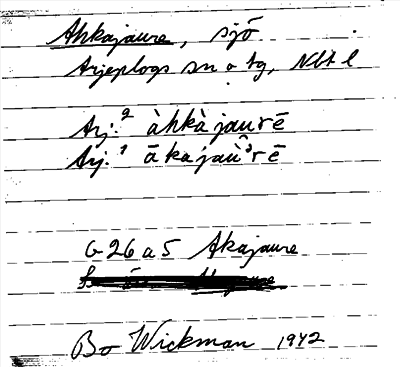 Ahkajaure, sjö
Arjeplogs sn o tg, Nbt l
Arj.² àhkà jaurē
Arj.¹ āka jaurē
G 26 a 5 Akajaure
Bo Wickman 1942